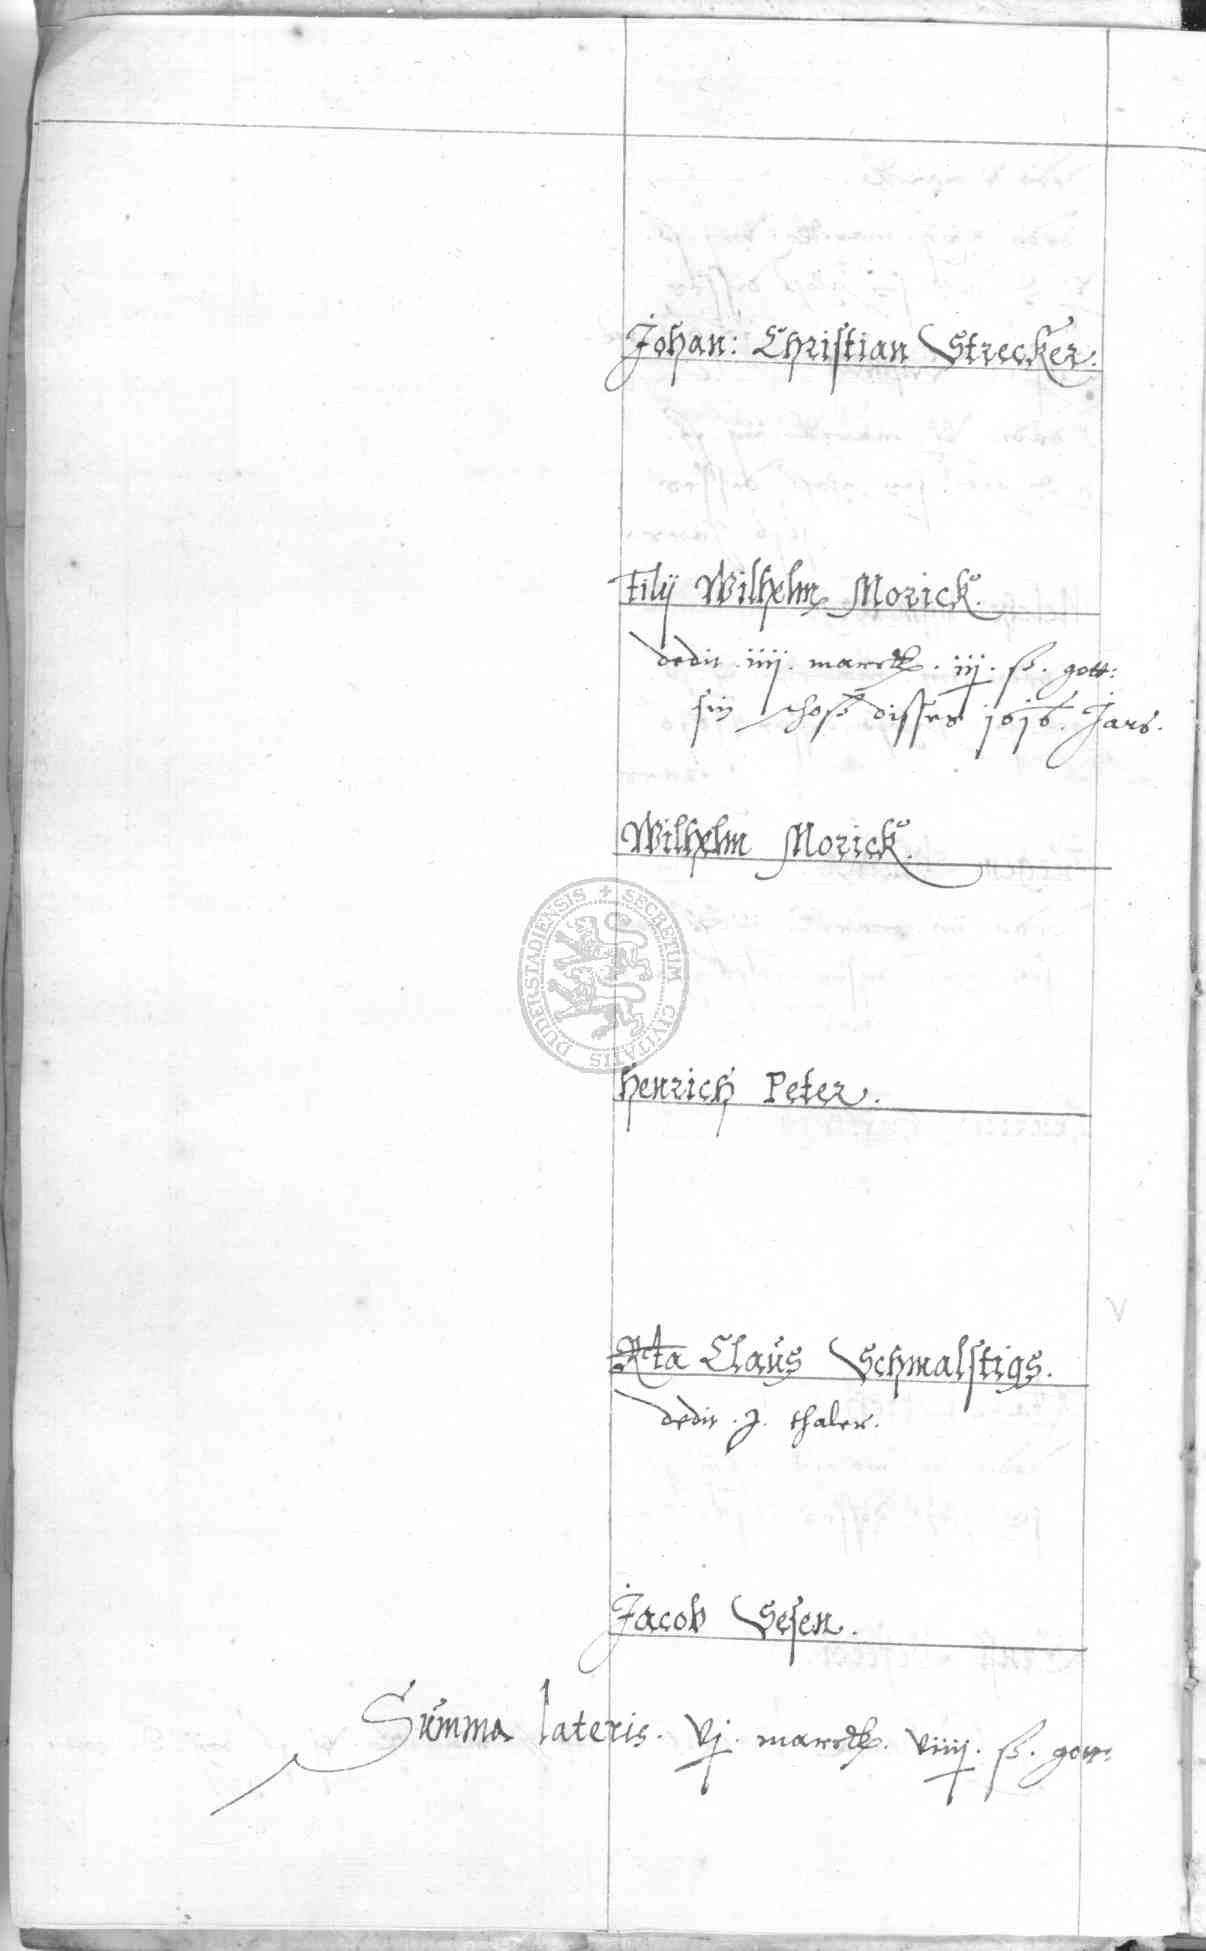 Johan: Christian Strecker.
Filij Wilhelm Morick.
dedit .iiij. marck. iij. ß. gott:
sin schoß disses 1616. Jars.
Wilhelm Morick.
SECRETUM CIVITATIS DUDERSTADIENSIS
Henrich Peter.
Rta Claus Schmalstigs.
dedit .j. thaler.
Jacob Sesen.
Summa lateris. vj. marck. viiij. ß. gott: